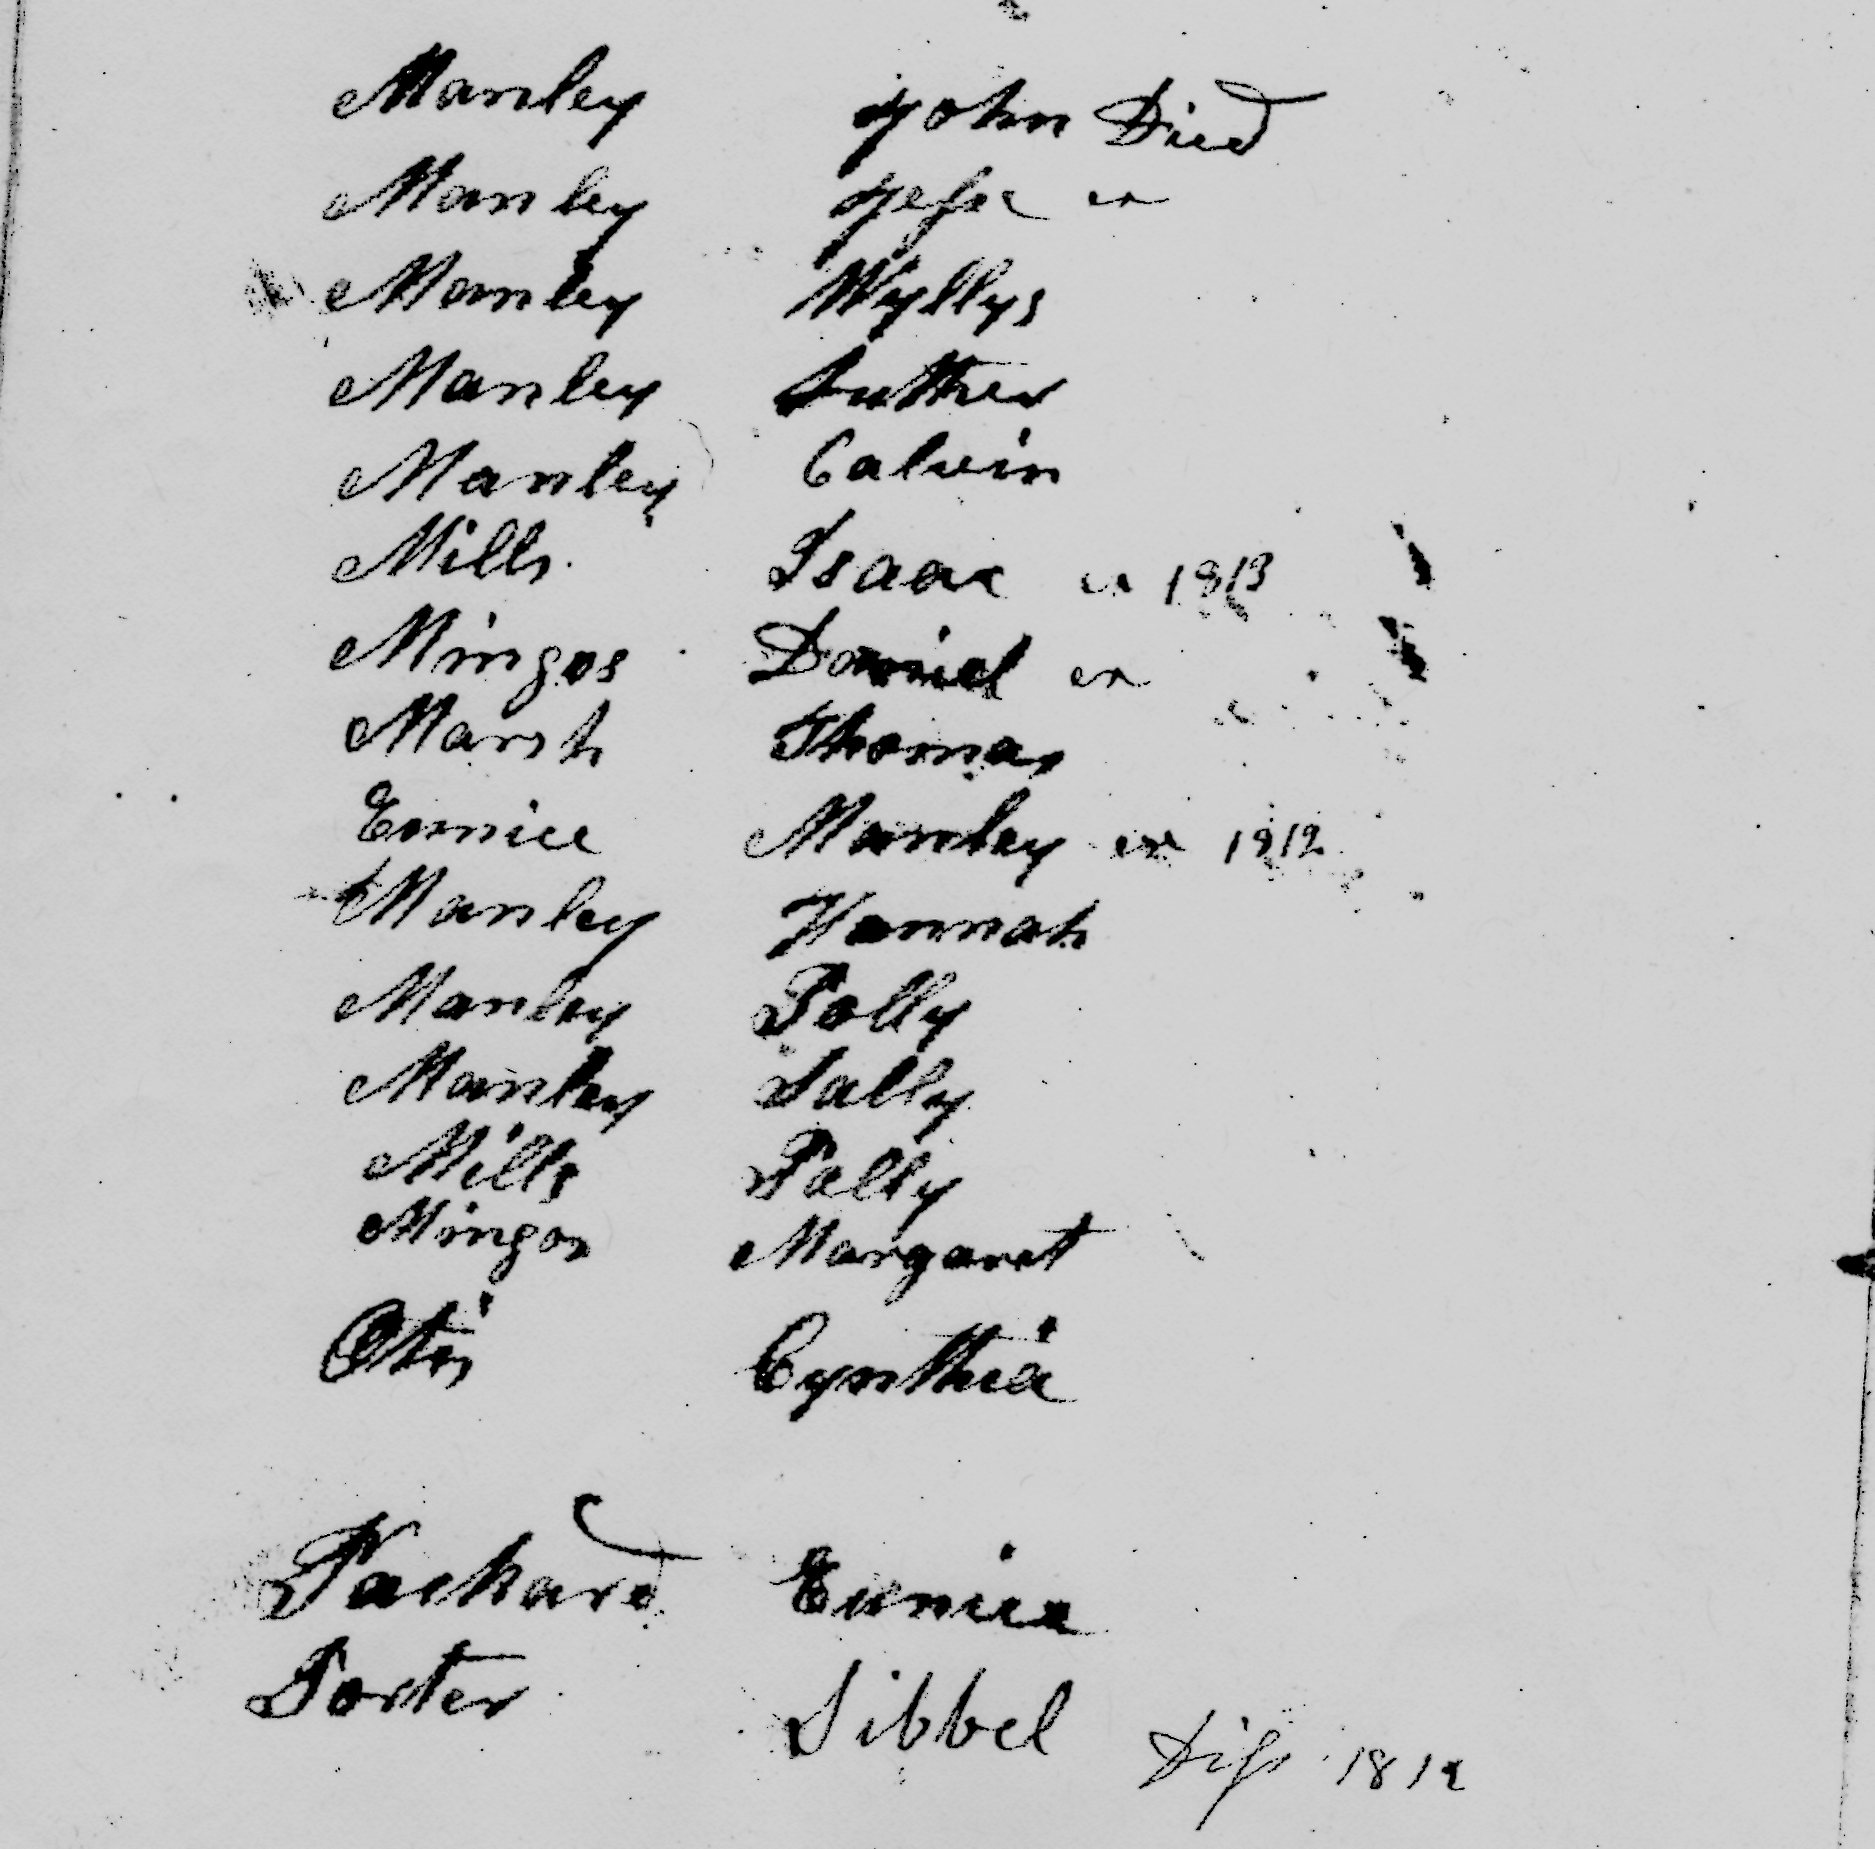 Manley John Died
Manley Jesse ex
Manley Wyllys
Manley Luther
Manley Calvin
Mills Isaac ex 1813
Mingos Daniel ex
Marsh Thomas
Eunice Manley ex 1812
Manley Hannah
Manley Polly
Manley Sally
Mills Polly
Mingos Margaret
Otis Cynthia
Packard Eunice
Porter Sibbel Diss 1812